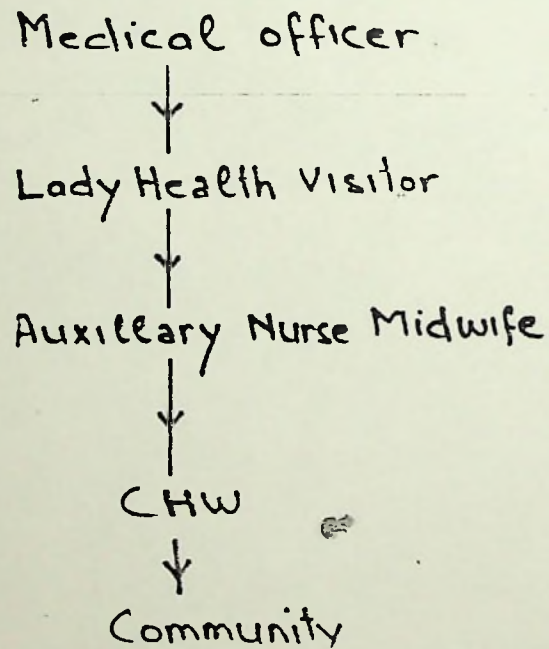 Medical officer
Lady Health Visitor
Auxillary Nurse Midwife
CHW
Community